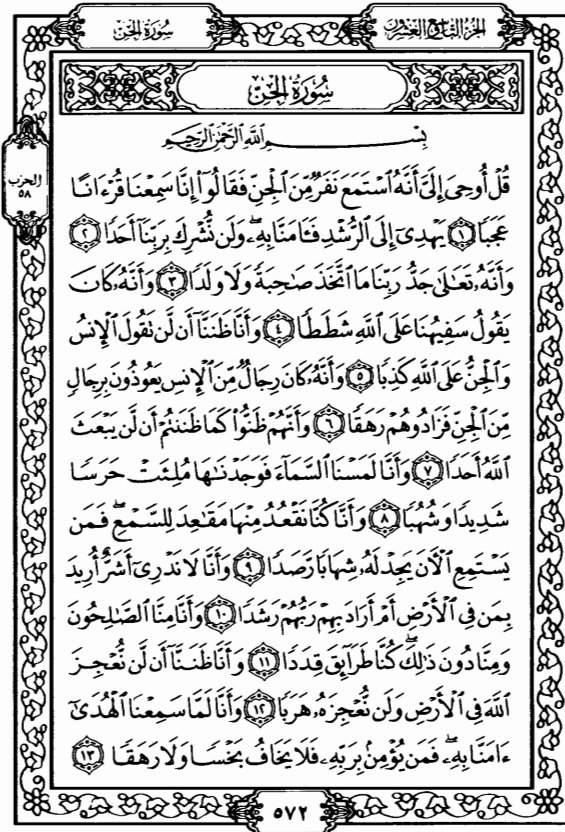 الجزء التاسع والعشرون
سورة الجن
سورة الجن
الحزب
٥٨
بسم الله الرحمن الرحيم
قُلْ أُوحِىَ إِلَىَّ أَنَّهُ ٱسْتَمَعَ نَفَرٌ مِّنَ ٱلْجِنِّ فَقَالُوٓا۟ إِنَّا سَمِعْنَا قُرْءَانًا
عَجَبًا ١ يَهْدِىٓ إِلَى ٱلرُّشْدِ فَـَٔامَنَّا بِهِۦ ۖ وَلَن نُّشْرِكَ بِرَبِّنَآ أَحَدًا ٢
وَأَنَّهُۥ تَعَٰلَىٰ جَدُّ رَبِّنَا مَا ٱتَّخَذَ صَٰحِبَةً وَلَا وَلَدًا ٣ وَأَنَّهُۥ كَانَ
يَقُولُ سَفِيهُنَا عَلَى ٱللَّهِ شَطَطًا ٤ وَأَنَّا ظَنَنَّآ أَن لَّن تَقُولَ ٱلْإِنسُ
وَٱلْجِنُّ عَلَى ٱللَّهِ كَذِبًا ٥ وَأَنَّهُۥ كَانَ رِجَالٌ مِّنَ ٱلْإِنسِ يَعُوذُونَ بِرِجَالٍ
مِّنَ ٱلْجِنِّ فَزَادُوهُمْ رَهَقًا ٦ وَأَنَّهُمْ ظَنُّوا۟ كَمَا ظَنَنتُمْ أَن لَّن يَبْعَثَ
ٱللَّهُ أَحَدًا ٧ وَأَنَّا لَمَسْنَا ٱلسَّمَآءَ فَوَجَدْنَٰهَا مُلِئَتْ حَرَسًا
شَدِيدًا وَشُهُبًا ٨ وَأَنَّا كُنَّا نَقْعُدُ مِنْهَا مَقَٰعِدَ لِلسَّمْعِ ۖ فَمَن
يَسْتَمِعِ ٱلْـَٔانَ يَجِدْ لَهُۥ شِهَابًا رَّصَدًا ٩ وَأَنَّا لَا نَدْرِىٓ أَشَرٌّ أُرِيدَ
بِمَن فِى ٱلْأَرْضِ أَمْ أَرَادَ بِهِمْ رَبُّهُمْ رَشَدًا ١٠ وَأَنَّا مِنَّا ٱلصَّٰلِحُونَ
وَمِنَّا دُونَ ذَٰلِكَ ۖ كُنَّا طَرَآئِقَ قِدَدًا ١١ وَأَنَّا ظَنَنَّآ أَن لَّن نُّعْجِزَ
ٱللَّهَ فِى ٱلْأَرْضِ وَلَن نُّعْجِزَهُۥ هَرَبًا ١٢ وَأَنَّا لَمَّا سَمِعْنَا ٱلْهُدَىٰٓ
ءَامَنَّا بِهِۦ ۖ فَمَن يُؤْمِنۢ بِرَبِّهِۦ فَلَا يَخَافُ بَخْسًا وَلَا رَهَقًا ١٣
٥٧٢